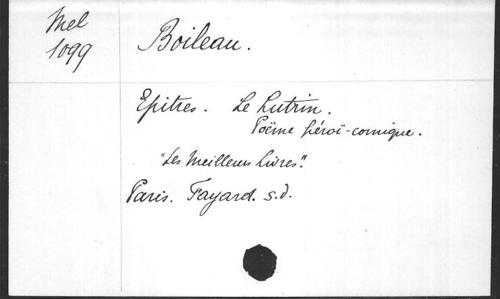 Mel
1099
Boileau.
Epitres. Le Lutrin.
Poëme héroï-comique.
"Les Meilleurs Livres".
Paris. Fayard. s.d.